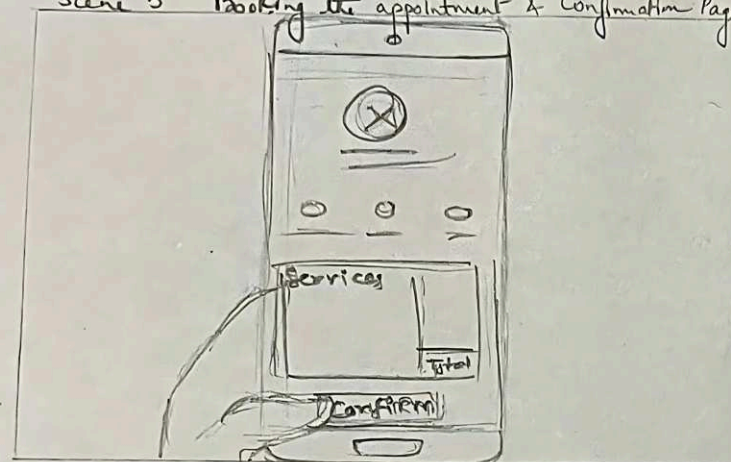 Scene 3 Booking the appointment & Confirmation Pag
Services
Total
Confirem